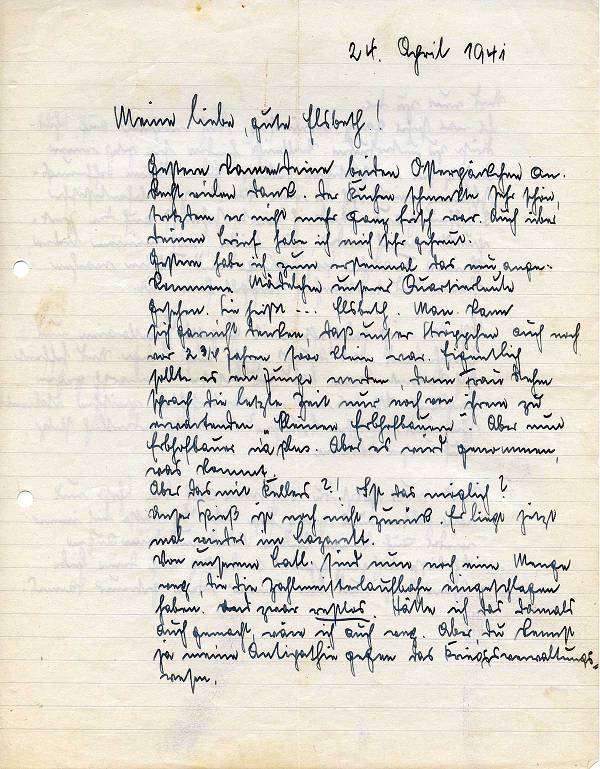 24. April 1941
Meine liebe, gute Elsbeth!
Gestern kamen deine beiden Osterpäckchen an.
Recht vielen Dank. Der Kuchen schmeckte sehr schön,
trotzdem er nicht mehr ganz frisch war. Auch über
deinen Brief habe ich mich sehr gefreut.
Gestern habe ich zum erstenmal das neu ange-
kommene Mädelchen unserer Quartierleute
gesehen. Sie heißt ... Elsbeth. Man kann
sich garnicht denken, daß unser Struppchen auch noch
vor 2 3/4 Jahren sooo klein war. Eigentlich
sollte es ein Junge werden, denn Frau
sprach die letzte Zeit nur noch von ihrem zu
erwartenden „kleinen Erbhofbauern". Aber nun
Erbhofbauer in plus. Aber es wird genommen,
was kommt.
Aber das mit Kellers?! Ist das möglich?
Unser Spieß ist noch nicht zurück. Er liegt jetzt
mal wieder im Lazarett.
Von unserem Batl. sind nun noch eine Menge
weg, die die Zahlmeisterlaufbahn eingeschlagen
haben. und zwar restlos. Hätte ich das damals
auch gemacht, wäre ich auch weg. Aber, du kennst
ja meine Antipathie gegen das Kriegsverwaltungs-
wesen.